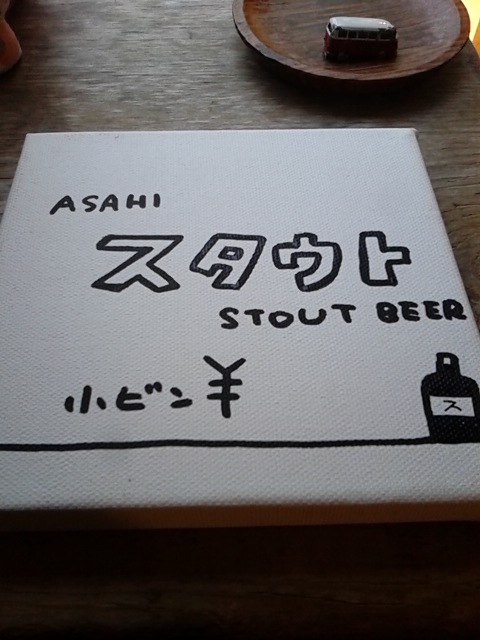 ASAHI
スタウト
STOUT BEER
小ビン ¥
ス